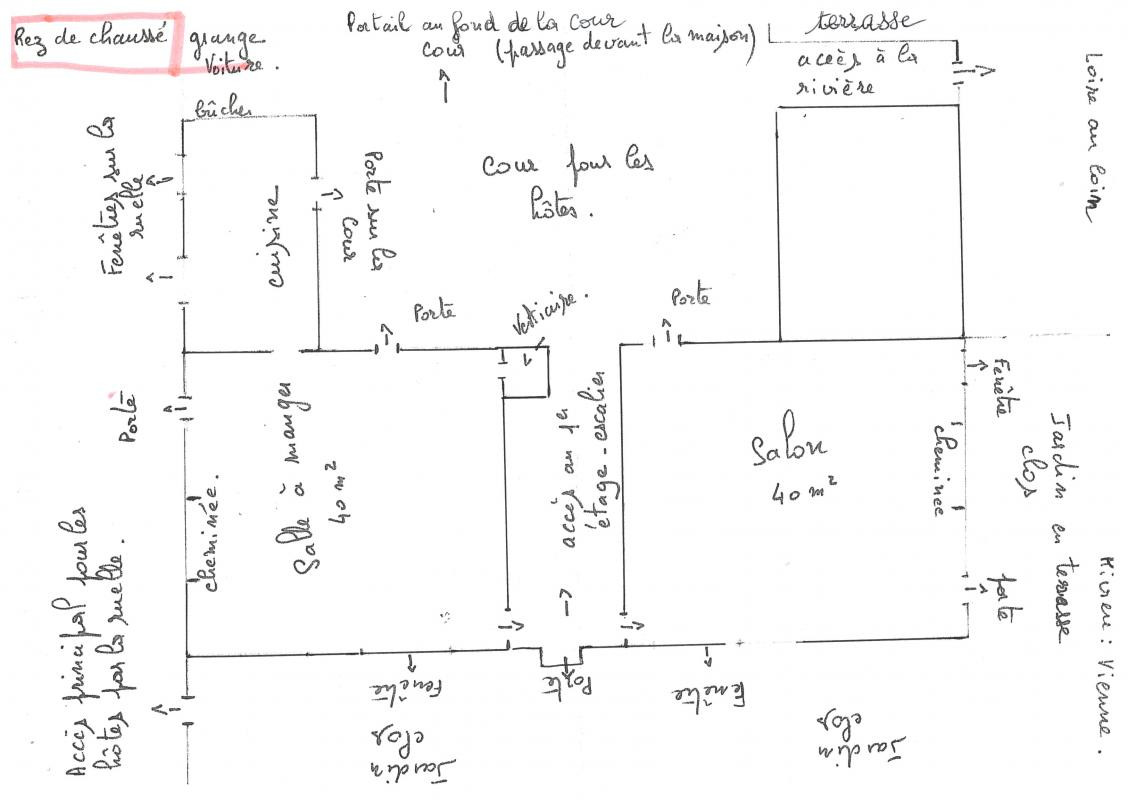 Rez de chaussé
grange
voiture.
Portail au fond de la cour
cour (passage devant la maison)
terrasse
accès à la
rivière
Loire au loin
bûcher
Fenêtres sur la
ruelle
cuisine
Porte sur la
cour
cour pour les
hôtes.
Porte
Vestiaire.
Porte
Porte
Salle à manger
40 m²
cheminée.
accès au 1er
étage-escalier
Salon
40 m²
Fenêtre
cheminee
porte
Jardin en terrasse
clos
Rivière: Vienne.
Accès principal pour les
hôtes par la ruelle.
Fenêtre
Porte
Fenêtre
Jardin
clos
Jardin
clos